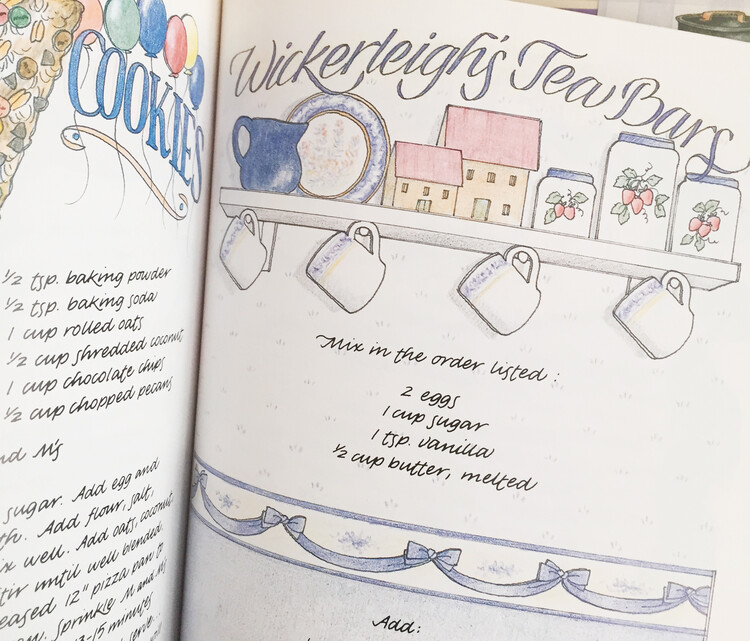 COOKIES
½ tsp. baking powder
½ tsp. baking soda
1 cup rolled oats
½ cup shredded coconut
1 cup chocolate chips
½ cup chopped pecans
M's
sugar. Add egg and
Add flour, salt,
well. Add oats, coconut
until well blended.
12" pizza pan to
Sprinkle M and M's
minutes
serve...
Wickerleigh's Tea Bars
Mix in the order listed:
2 eggs
1 cup sugar
1 tsp. vanilla
½ cup butter, melted
Add: